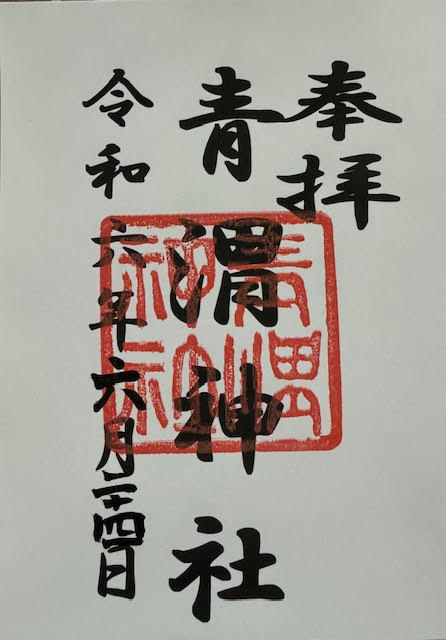 奉拝
青渭神社
令和六年六月二十四日
青渭神社